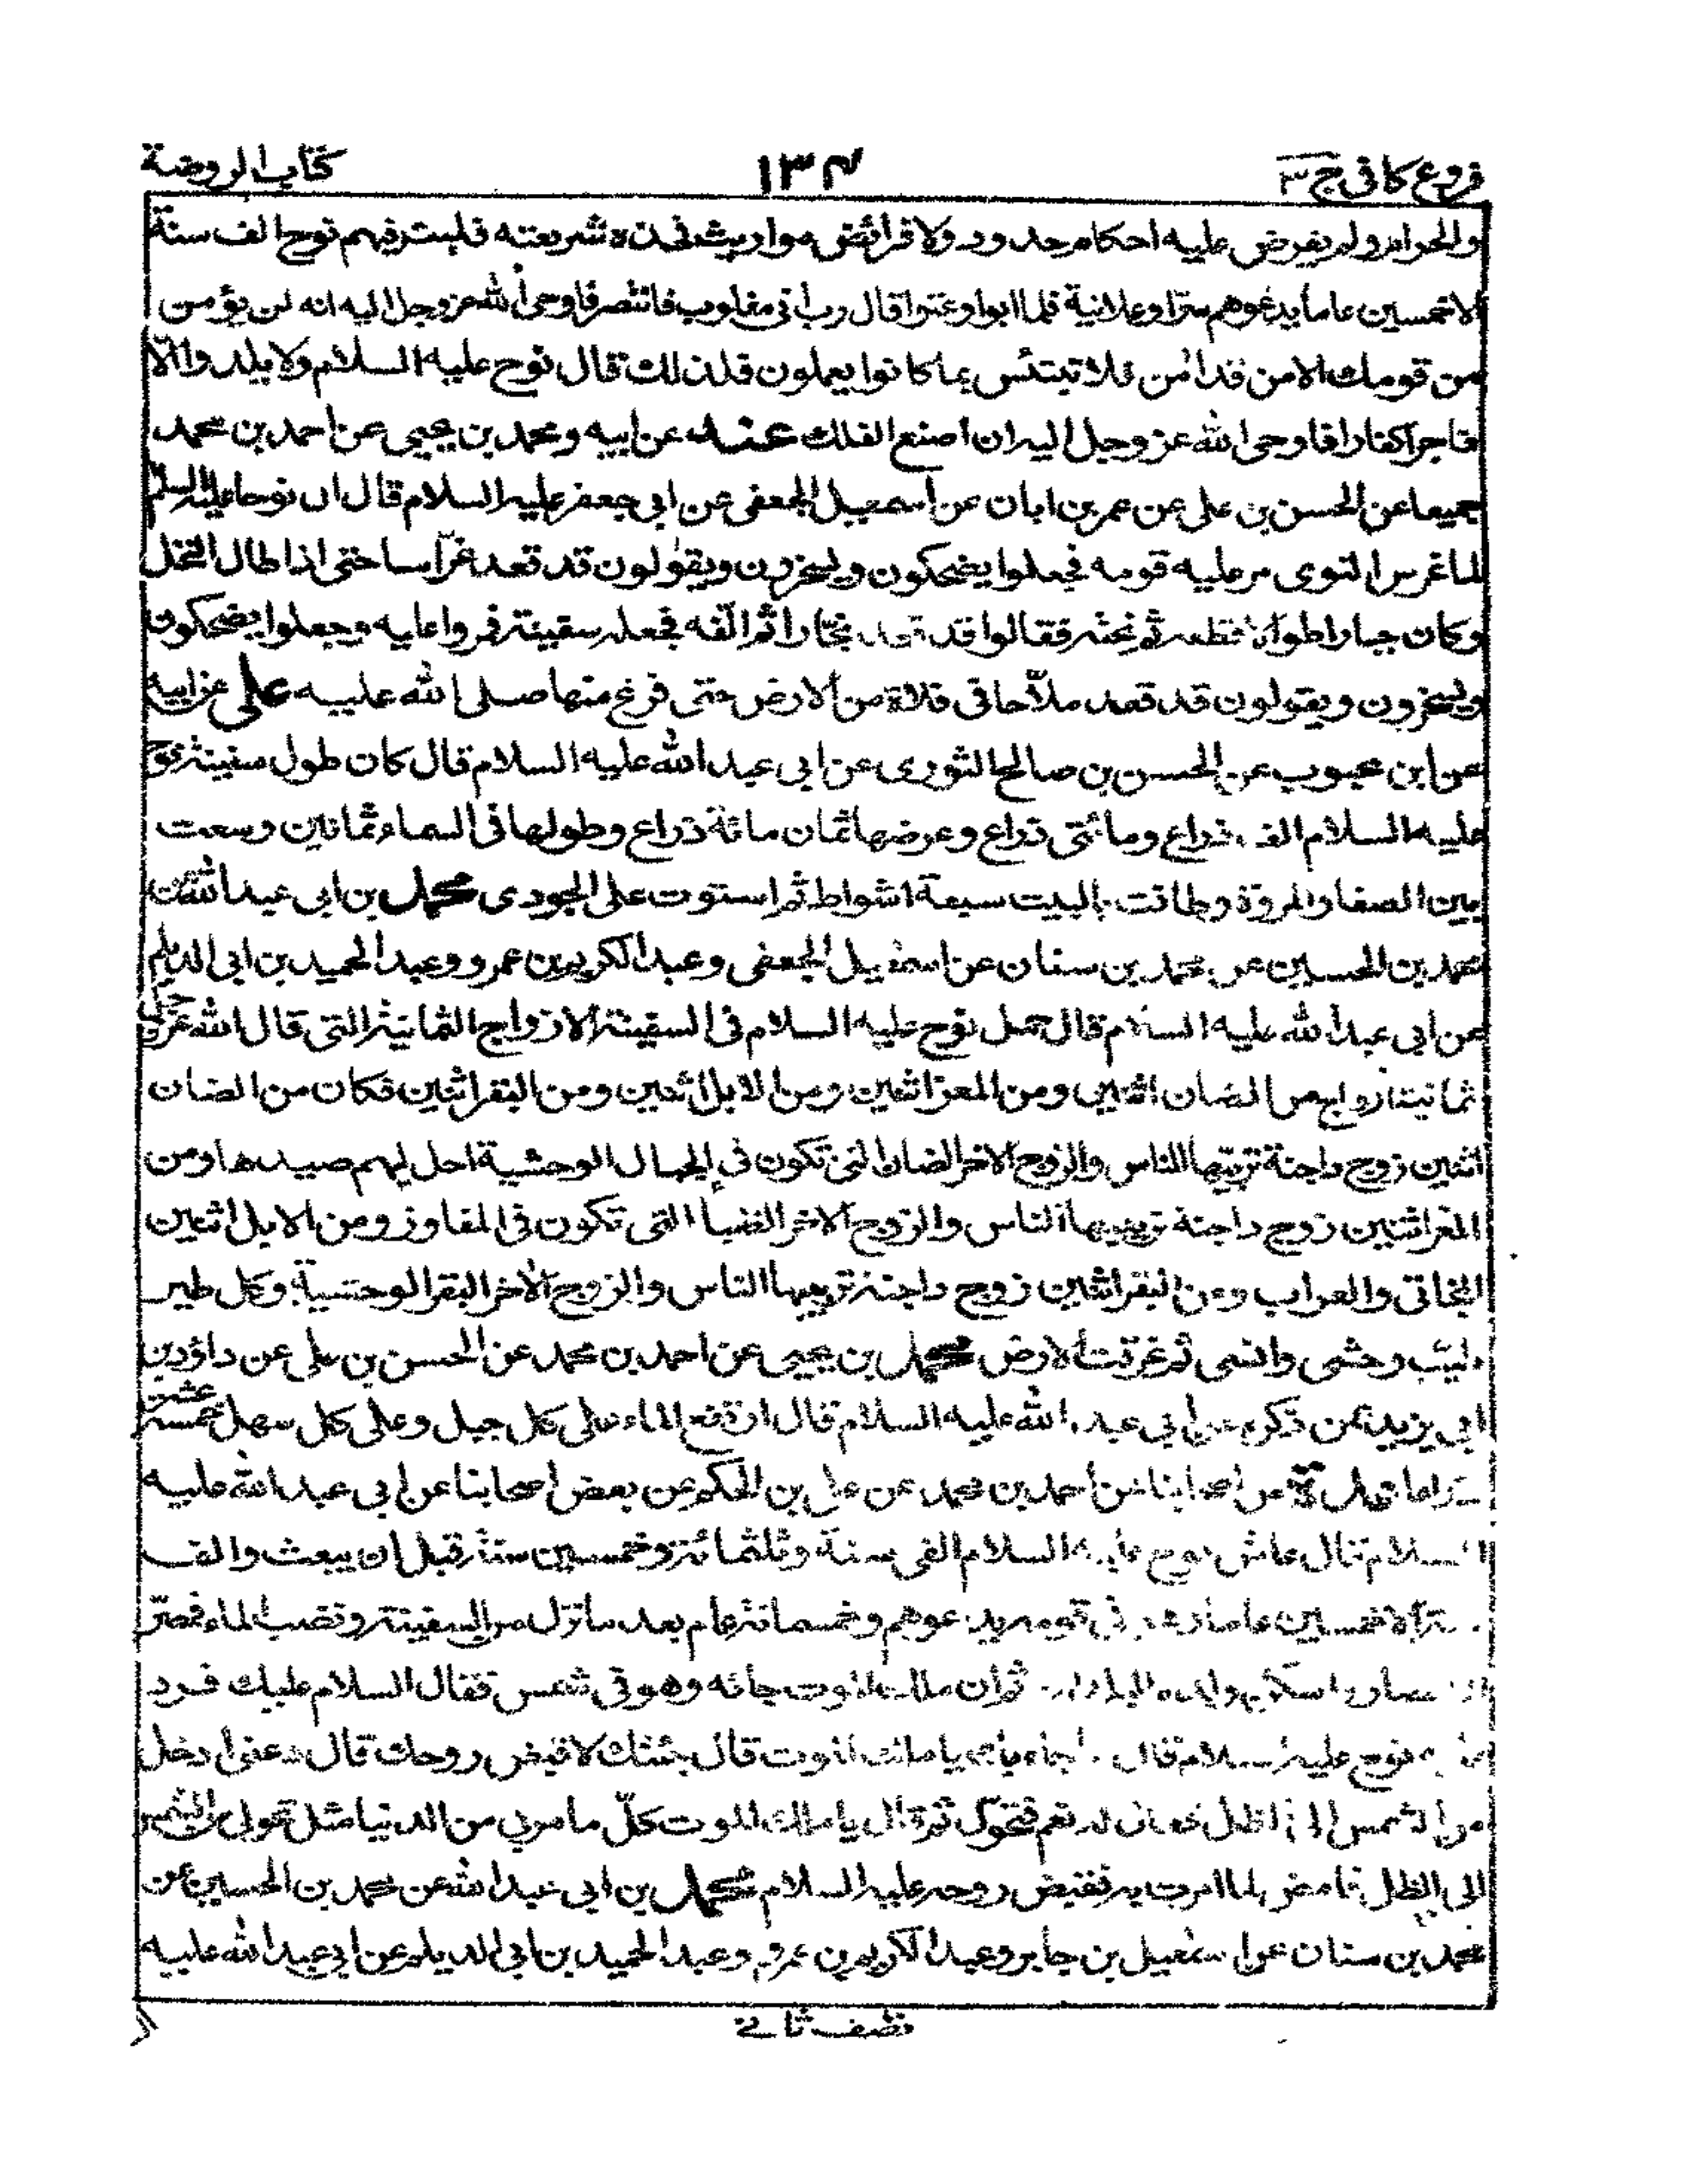 فروع كافى ج ٣
١٣٤
كتاب الروضة
والحرام ولم يفرض عليه احكام حدود ولا فرائض مواريث فهذه شريعته فلبث فيهم نوح الف سنة
الا خمسين عاما يدعوهم سرّا وعلانية فلما ابوا وعتوا قال رب انى مغلوب فانتصر فاوحى الله عز وجل اليه انه لن يؤمن
من قومك الا من قد امن فلا تبتئس بما كانوا يعملون فلذلك قال نوح عليه السلام ولا يلدوا الّا
فاجرا كفارا فاوحى الله عز وجل اليه ان اصنع الفلك عنه عن ابيه ومحمد بن يحيى عن احمد بن محمد
جميعا عن الحسن بن على عن عمر بن ابان عن اسمعيل الجعفى عن ابى جعفر عليه السلام قال ان نوحا عليه السلم
لما غرس النوى مر عليه قومه فجعلوا يضحكون ويسخرون ويقولون قد قعد غرّاسا حتى اذا طال النخل
وكان جبارا طوالا قطعه ثم نحته فقالوا قد قعد نجّارا ثم الّفه فجعله سفينة فمروا عليه وجعلوا يضحكون
ويسخرون ويقولون قد قعد ملاّحا فى فلاة من الارض حتى فرغ منها صلى الله عليه على عن ابيه
عن ابن محبوب عن الحسن بن صالح الثورى عن ابى عبد الله عليه السلام قال كان طول سفينة نوح
عليه السلام الف ذراع ومائتى ذراع وعرضها ثمان مائة ذراع وطولها فى السماء ثمانين وسعت
بين الصفا والمروة وطافت بالبيت سبعة اشواط ثم استوت على الجودى محمد بن ابى عبد الله عن
محمد بن الحسين عن محمد بن سنان عن اسمعيل الجعفى وعبد الكريم بن عمرو وعبد الحميد بن ابى الديلم
عن ابى عبد الله عليه السلام قال حمل نوح عليه السلام فى السفينة الازواج الثمانية التى قال الله عز وجل
ثمانية ازواج من الضان اثنين ومن المعز اثنين ومن الابل اثنين ومن البقر اثنين فكان من الضان
اثنين زوج داجنة تربيّها الناس والزوج الاخر الضان التى تكون فى الجبال الوحشية احل لهم صيدها ومن
المعز اثنين زوج داجنة تربيها الناس والزوج الاخر الضبأ التى تكون فى المفاوز ومن الابل اثنين
البخاتى والعراب ومن البقر اثنين زوج داجنة تربيها الناس والزوج الاخر البقر الوحشية وكل طير
طيّب وحشى وانسى ثم غرقت الارض محمد بن يحيى عن احمد بن محمد عن الحسن بن على عن داؤد بن
ابى يزيد عمن ذكره عن ابى عبد الله عليه السلام قال ارتفع الماء على كل جبل وعلى كل سهل خمسة عشر
ذراعا عدة من اصحابنا عن احمد بن محمد عن على بن الحكم عن بعض اصحابنا عن ابى عبد الله عليه
السلام قال عاش نوح عليه السلام الفى سنة وثلثمائة وخمسين سنة قبل ان يبعث والف
سنة الا خمسين عاما فى قومه يدعوهم وخمسمائة عام بعد ما نزل من السفينة ونضب الماء فمصّر
الامصار واسكن ولده البلدان ثم ان ملك الموت جائه وهو فى شمس فقال السلام عليك فرد
نوح عليه السلام قال ما جاء بك يا ملك الموت قال جئتك لاقبض روحك قال دعنى ادخل
من الشمس الى الظل فقال له نعم فتحوّل ثم قال يا ملك الموت كلّ ما مر بى من الدنيا مثل تحولى من الشمس
الى الظل فامض لما امرت به فقبض روحه عليه السلام محمد بن ابى عبد الله عن محمد بن الحسين عن
محمد بن سنان عن اسمعيل بن جابر وعبد الكريم بن عمرو وعبد الحميد بن ابى الديلم عن ابى عبد الله عليه
نصف ثانى